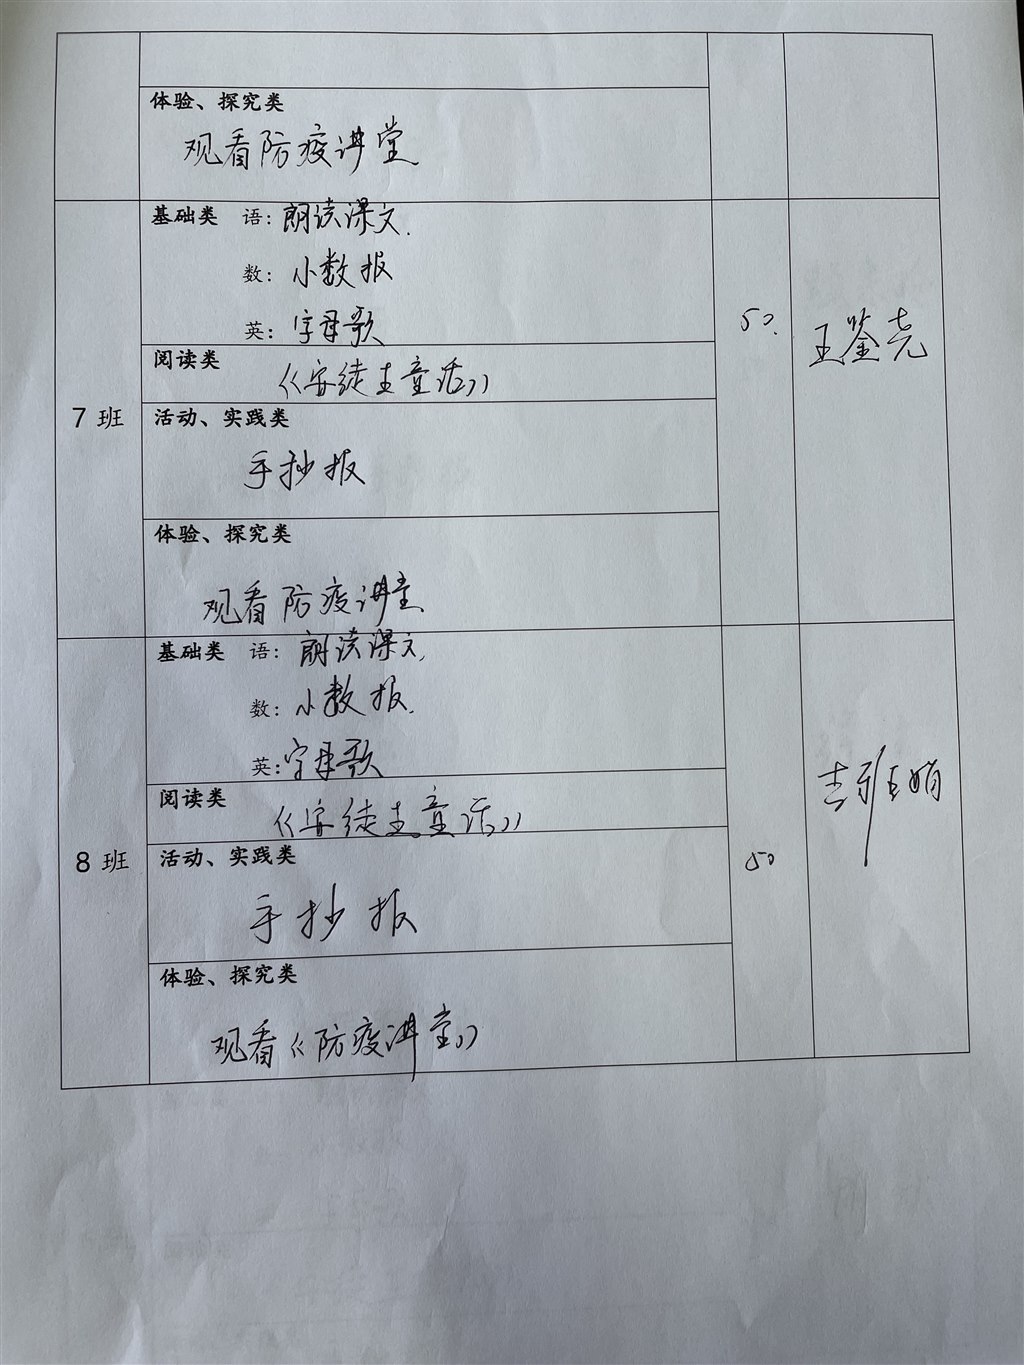 体验、探究类
观看防疫讲堂
基础类 语: 朗读课文.
数: 小数报
英: 字母歌
阅读类
《安徒生童话》
7 班
活动、实践类
手抄报
体验、探究类
观看防疫讲堂
50.
基础类 语: 朗读课文,
数: 小数报.
英: 字母歌
阅读类
《安徒生童话》
8 班
活动、实践类
手抄报
体验、探究类
观看《防疫讲堂》
50